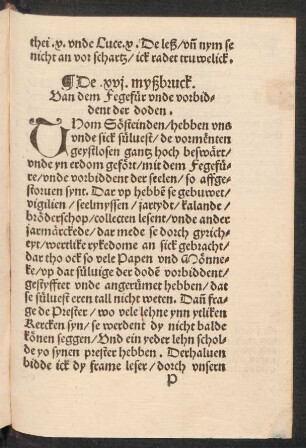 thei .x. vnde Luce.x. De leß/vñ nym se
nicht an vor schartz/ick radet truwelick.
¶ De .xvj. myßbruck.
Van dem Fegefür vnde vorbid-
dent der doden.
THom Sösteinden/hebben vns
vnde sick süluest/de vormēnten
geystlosen gantz hoch beswärt/
vnde yn erdom geföhrt/mit dem Fegefü-
re/vnde vorbiddent der seelen/so affge-
storuen synt. Dar vp hebbē se gebuwet/
vigilien/seelmyssen/jartydt/kalande/
bröderschop/collecten lesent/vnde ander
jarmärckede/dar mede se dorch gyrich-
eyt/wertlike rykedome an sick gebracht/
dar tho ock so vele Papen vnd Mönne-
ke/vp dat süluige der dodē vorbiddent/
gestyfftet vnde angerümet hebben/dat
se süluest eren tall nicht weten. Dañ fra-
ge de Prester/wo vele lehne ynn yeliken
Kercken syn/se werdent dy nicht balde
könen seggen/Vnd ein yeder lehn schol-
de yo synen prester hebben. Derhaluen
bidde ick dy frame leser/dorch vnsern
p